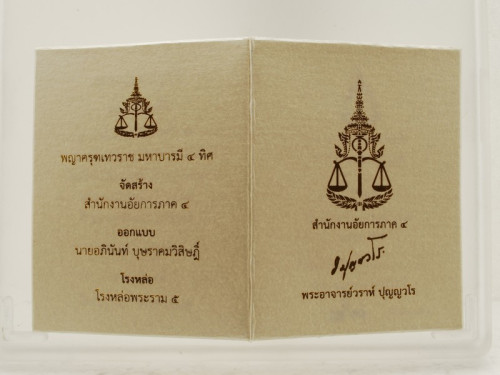 พญาครุฑเทวราช มหาบารมี ๔ ทิศ
จัดสร้าง
สำนักงานอัยการภาค ๔
ออกแบบ
นายอภินันท์ บุษราคมวิสิษฏิ์
โรงหล่อ
โรงหล่อพระราม ๕
สำนักงานอัยการภาค ๔
พระอาจารย์วราห์ ปุญญวโร